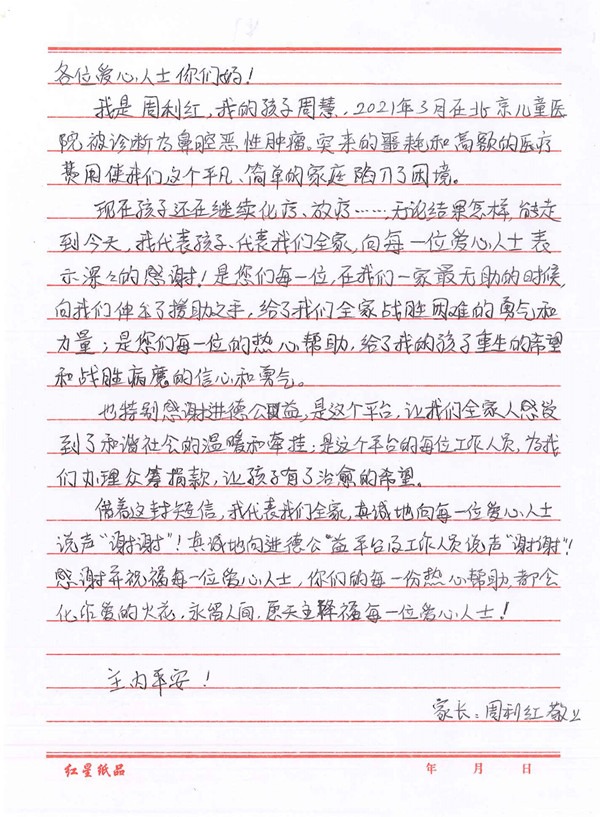 各位爱心人士你们好！
我是周利红，我的孩子周慧，2021年3月在北京儿童医
院被诊断为鼻腔恶性肿瘤。突来的噩耗和高额的医疗
费用使我们这个平凡、简单的家庭陷入了困境。
现在孩子还在继续化疗、放疗……，无论结果怎样，能走
到今天，我代表孩子、代表我们全家，向每一位爱心人士表
示深々的感谢！是您们每一位，在我们一家最无助的时候，
向我们伸出了援助之手，给了我们全家战胜困难的勇气和
力量；是您们每一位的热心帮助，给了我的孩子重生的希望
和战胜病魔的信心和勇气。
也特别感谢进德公益，是这个平台，让我们全家人感受
到了和谐社会的温暖和牵挂；是这个平台的每位工作人员，为我
们办理众筹捐款，让孩子有了治愈的希望。
借着这封短信，我代表我们全家，真诚地向每一位爱心人士
说声“谢谢”！真诚地向进德公益平台及工作人员说声“谢谢”！
感谢并祝福每一位爱心人士，你们的每一份热心帮助，都会
化作爱的火花，永留人间，愿天主降福每一位爱心人士！
主内平安！
家长：周利红敬上
红星纸品 年 月 日